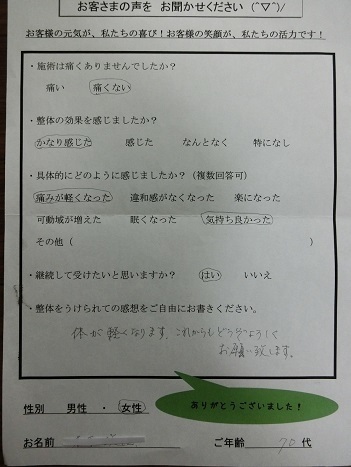 お客さまの声を お聞かせください (´▽`)/
お客様の元気が、私たちの喜び!お客様の笑顔が、私たちの活力です!
・施術は痛くありませんでしたか?
痛い 痛くない
・整体の効果を感じましたか?
かなり感じた 感じた なんとなく 特になし
・具体的にどのように感じましたか?(複数回答可)
痛みが軽くなった 違和感がなくなった 楽になった
可動域が増えた 眠くなった 気持ち良かった
その他( )
・継続して受けたいと思いますか? はい いいえ
・整体をうけられての感想をご自由にお書きください。
体が軽くなります。これからもどうぞよろしく
お願い致します。
ありがとうございました!
性別 男性 ・ 女性
お名前 ご年齢 70 代